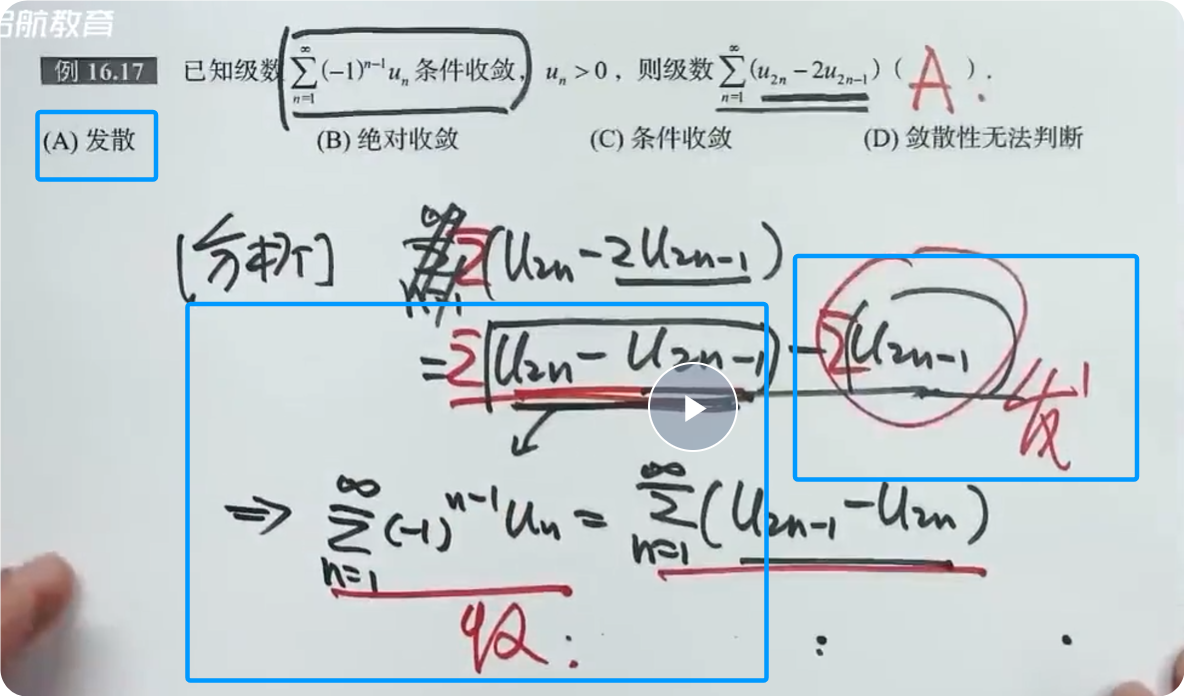 启航教育
例 16.17 已知级数 $\sum_{n=1}^{\infty}(-1)^{n-1}u_n$ 条件收敛, $u_n>0$, 则级数 $\sum_{n=1}^{\infty}(u_{2n}-2u_{2n-1})$ ( A ).
(A) 发散 (B) 绝对收敛 (C) 条件收敛 (D) 敛散性无法判断
[分析] $\sum(u_{2n}-2u_{2n-1})$
$=\sum(u_{2n}-u_{2n-1})-\sum(u_{2n-1})$
$\Rightarrow \sum_{n=1}^{\infty}(-1)^{n-1}u_n=\sum_{n=1}^{\infty}(u_{2n-1}-u_{2n})$